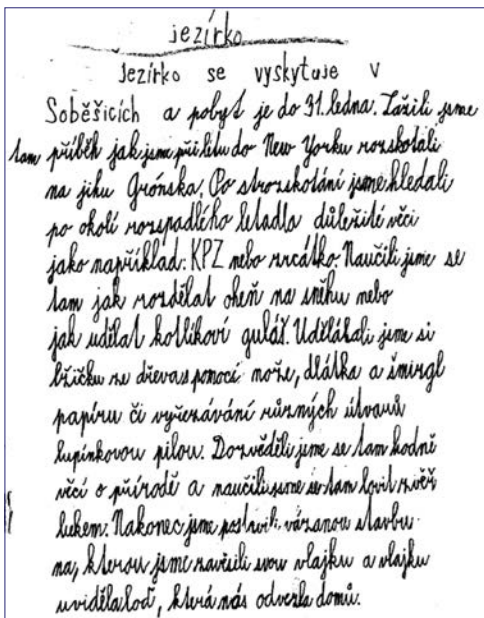 jezírko
Jezírko se vyskytuje v
Soběšicích a pobyt je do 31. ledna. Zažili jsme
tam příběh jak jsme při letu do New Yorku rozskotáli
na jihu Grónska. Po strozskotání jsme hledali
po okolí rozspadlého letadla důležité věci
jako například: KPZ nebo zrcátko. Naučili jsme se
tam jak rozdělat oheň na sněhu nebo
jak udělat kotlíkoví guláš. Udělákali jsme si
lžičku ze dřeva s pomocí nože, dlátka a šmirgl
papíru či vyřezávání různých útvarů
lupínkovou pilou. Dozvěděli jsme se tam hodně
věcí o přírodě a naučili jsme se tam lovit zvěř
lukem. Nakonec jsme postavili vázanou stavbu
na, kterou jsme zavěsili svou vlajku a vlajku
uviděla loď, která nás odvezla domů.